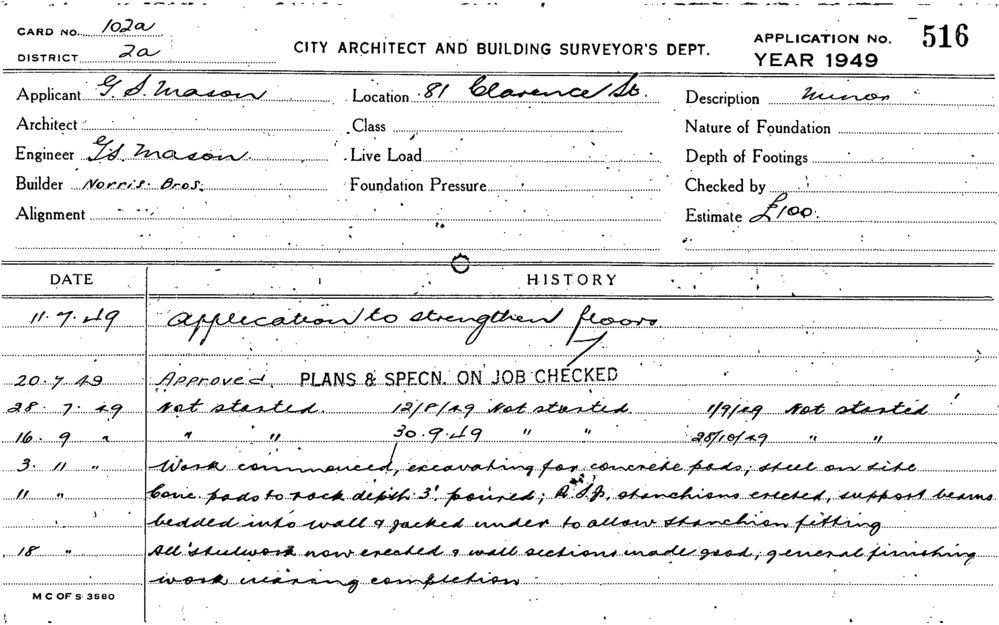 CARD NO. 102a
DISTRICT 2a
CITY ARCHITECT AND BUILDING SURVEYOR'S DEPT.
APPLICATION NO. 516
YEAR 1949
Applicant G. S. Mason
Location 81 Clarence St.
Description Minor
Architect
Class
Nature of Foundation
Engineer G.S. Mason.
Live Load
Depth of Footings
Builder Norris. Bros.
Foundation Pressure
Checked by
Alignment
Estimate £100.
DATE HISTORY
11.7.49 Application to strengthen floors.
20.7.49 Approved. PLANS & SPECN. ON JOB CHECKED
28.7.49 Not started. 12/8/49 Not started. 1/9/49 Not started
16.9 " " " 30.9.49 " " 28/10/49 " "
3.11 " Work commenced, excavating for concrete pads; steel on site
11 " Conc. pads to rock depth 3' poured; R.S.J. stanchions erected, support beams
bedded into wall & jacked under to allow stanchion fitting
18 " All steelwork now erected & wall sections made good, general finishing
work nearing completion
M C OF S 3580